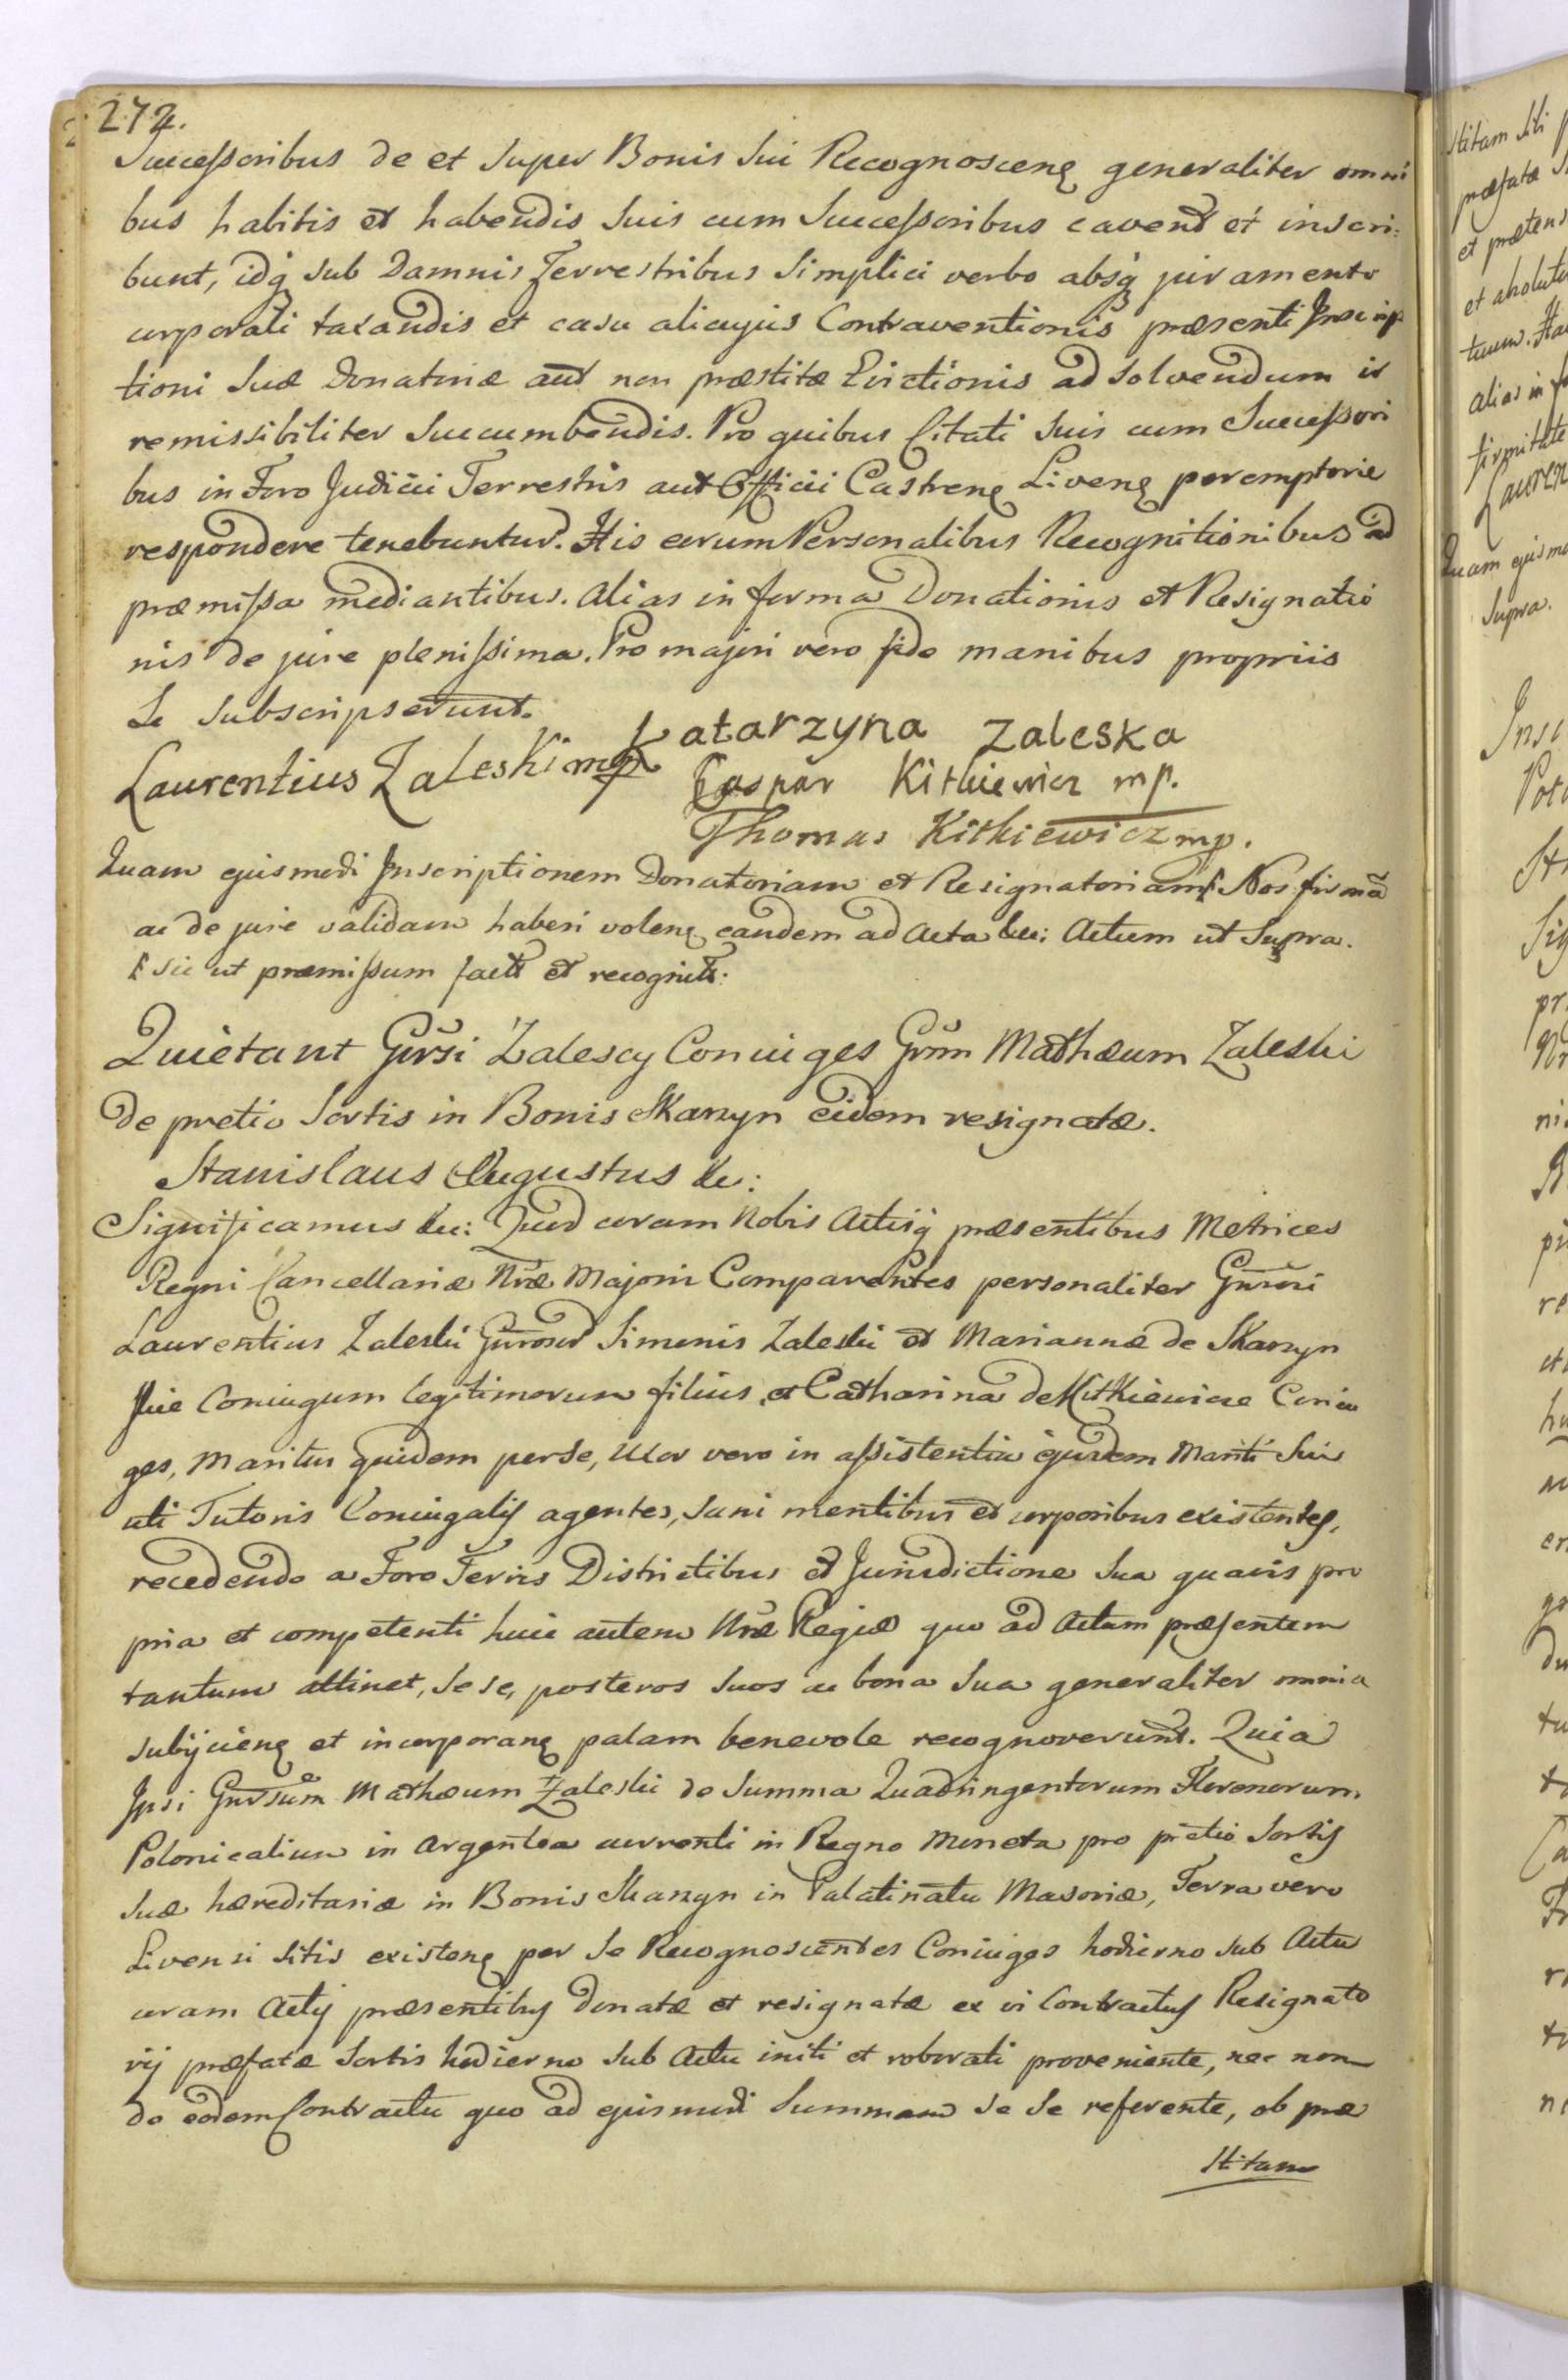 274.
Successoribus de et super Bonis sui Recognoscenq generaliter omni
bus habitis et habendis suis cum Successoribus cavent et inscri:
bunt, idq sub Damnis Terrestribus simplici verbo absq juramento
corporali taxandis et casu alicujus Contraventionis præsenti Inscrip
tioni suæ Donatoriæ aut non præstitæ Evictionis ad solvendum ir
remissibiliter succumbendis. Pro quibus Citati suis cum Successori
bus in Foro Judicii Terrestris aut Officii Castrenq Livenq peremptorie
respondere tenebuntur. His eorum Personalibus Recognitionibus ad
præmissa mediantibus. Alias in forma Donationis et Resignatio
nis de jure plenissima. Pro majori vero fide manibus propriis
se subscripserunt.
Laurentius Zaleski mp Katarzyna Zaleska
Caspar Kitkiewicz mp.
Thomas Kitkiewicz mp.
Quam ejusmodi Inscriptionem Donatoriam et Resignatoriam Nos firmã
ac de jure validam haberi volenq eandem ad Acta &c: Actum ut supra.
sic ut præmissum factã et recognitã.
Quietant Gnrsi Zalescy Coniuges Grsm Mathæum Zaleski
de pretio Sortis in Bonis Skarzyn eidem resignatæ.
Stanislaus Augustus &c:
Significamus &c: Quod coram Nobis Actisq præsentibus Metrices
Regni Cancellariæ Nræ Majoris Comparentes personaliter Gnrosi
Laurentius Zaleski Gnrosor Simonis Zaleski et Mariannæ de Skarzyn
skie Coniugum legitimorum filius, et Catharina de Kitkiewicze Coniu
ges, Maritus quidem per se, Uxor vero in assistentia ejusdem Mariti sui
uti Tutoris Coniugalis agentes, sani mentibus et corporibus existentes,
recedendo a Foro Terris Districtibus et Jurisdictione sua quavis pro
pria et competenti huic autem Nræ Regiæ quo ad Actum præsentem
tantum attinet, sese, posteros suos ac bona sua generaliter omnia
subijcienq et incorporanq palam benevole recognoverunt. Quia
Ipsi Gnrsum Mathæum Zaleski de Summa Quadringentorum Florenorum
Polonicalium in argentea currenti in Regno Moneta pro pretio Sortis
suæ hæreditariæ in Bonis Skarzyn in Palatinatu Masoviæ, Terra vero
Livensi sitis existenq per se Recognoscentes Coniuges hodierno sub Actu
coram Actis præsentibus donatæ et resignatæ ex vi Contractus Resignato
rij præfatæ Sortis hodierno sub Actu initi et roborati proveniente, nec non
de eodem Contractu quo ad ejusmodi Summam se se referente, ob præ
stitam